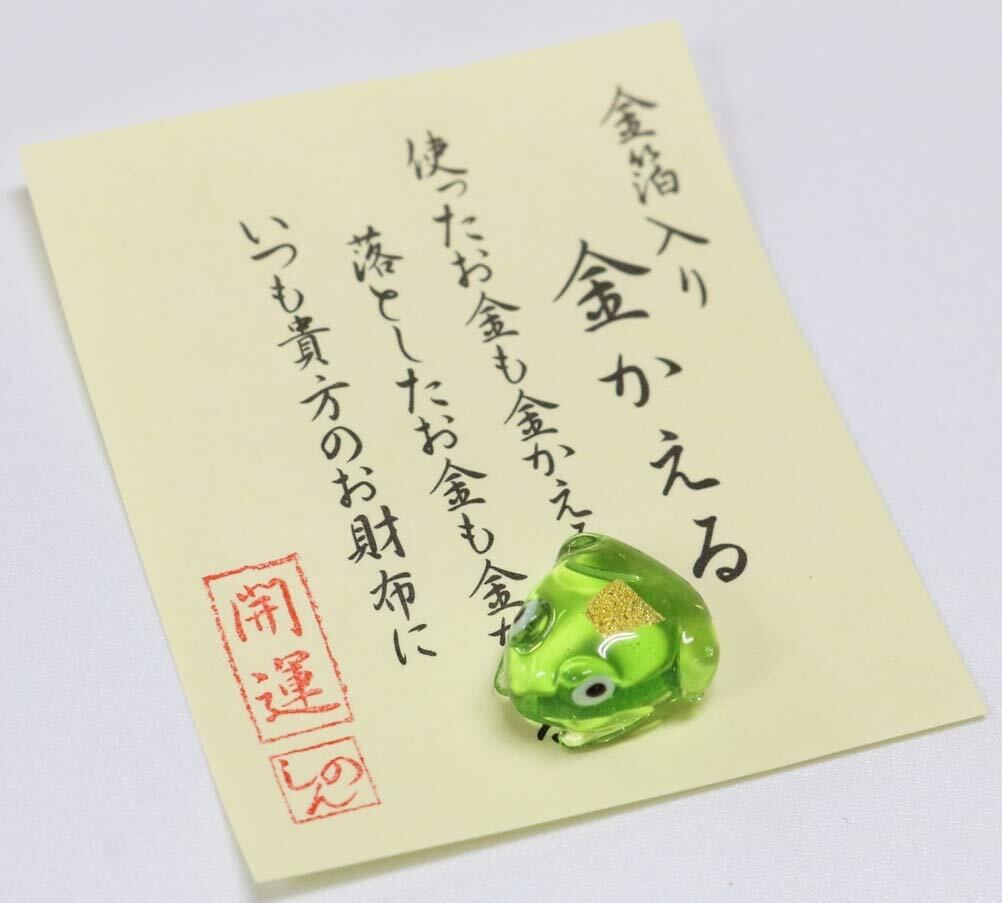 金箔入り
金かえる
使ったお金も金かえ
落としたお金も金か
いつも貴方のお財布に
開運
のん
し